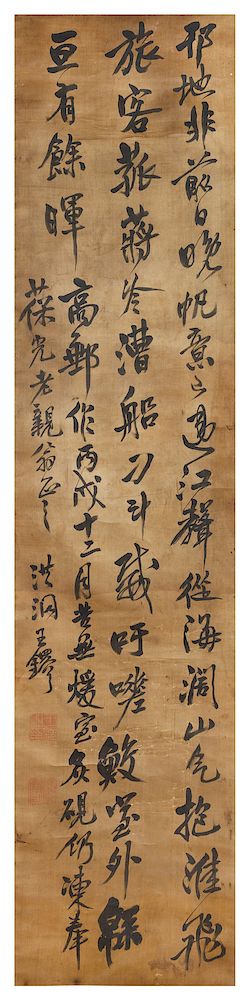 邗地非前日晚帆意已違江聲從海濶山气抱淮飛
旅客菰蔣冷漕船刀斗威吁嗟敷堂外緜
亘有餘暉 高郵作丙戌十二月苦無煖室炙硯仍凍奉
葆光老親翁正之 洪洞王鐸